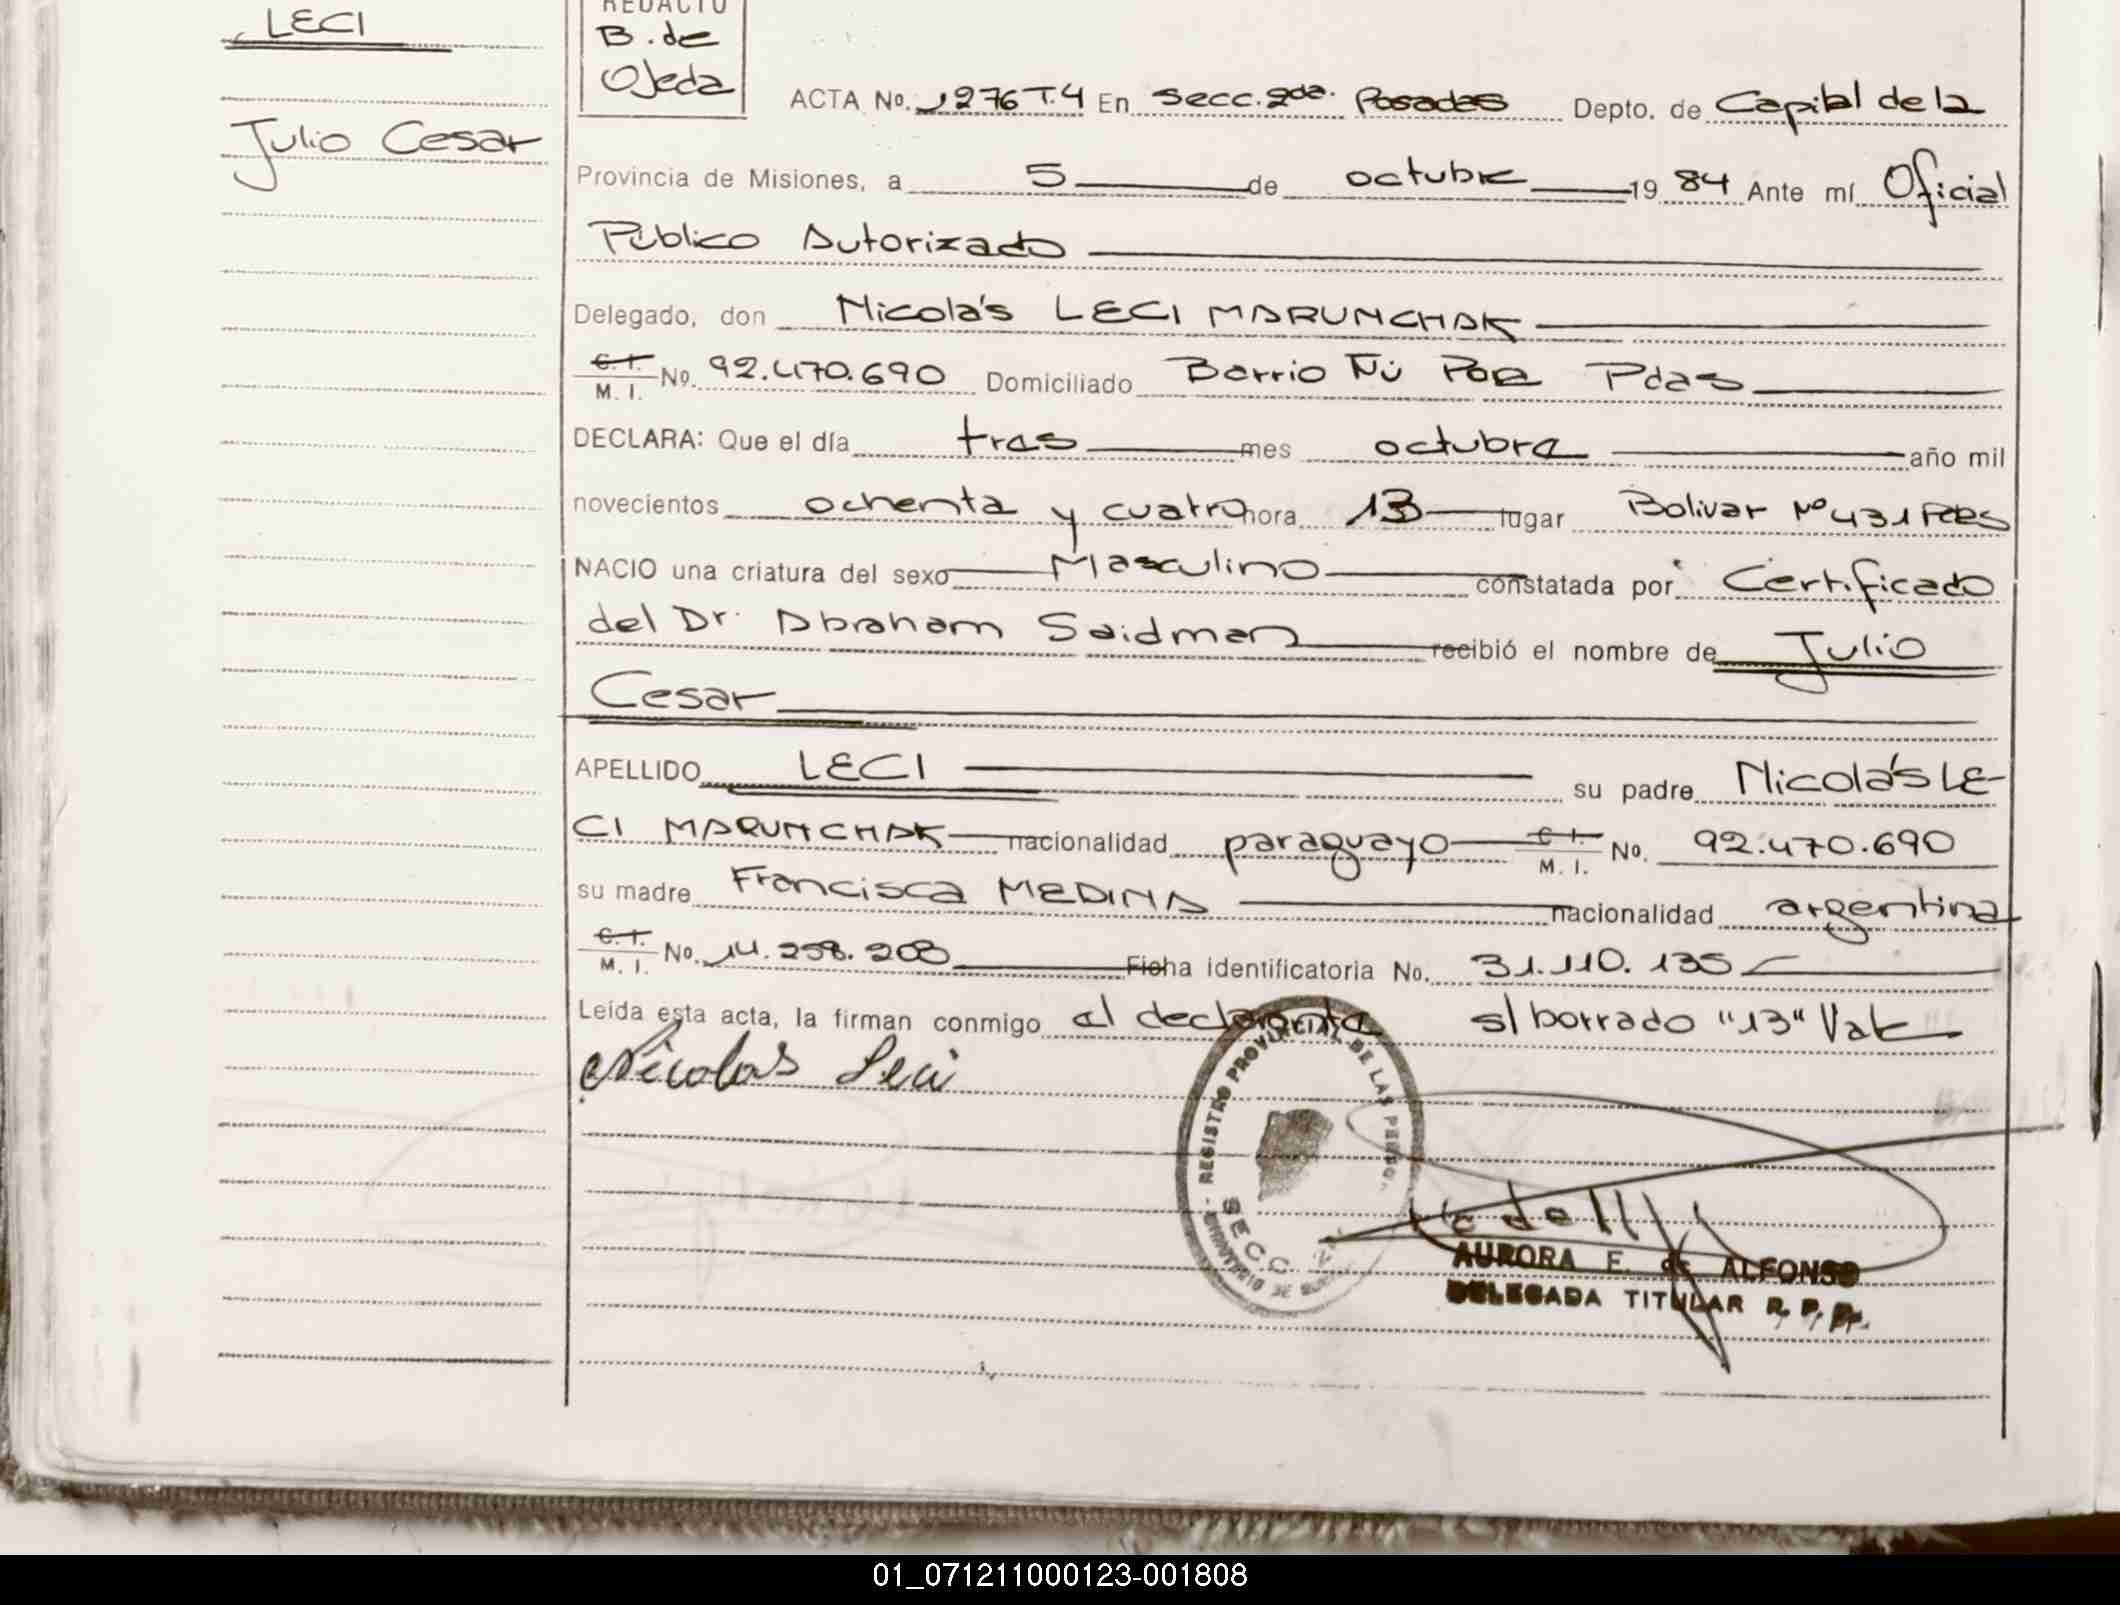 LECI
Julio Cesar
REDACTO
B. de
Ojeda
ACTA No. 1276 T.4 En Secc. 2da. Posadas Depto. de Capital de la
Provincia de Misiones, a 5 de octubre 19 84 Ante mí Oficial
Público Autorizado
Delegado, don Nicolás LECI MARUNCHAK
C. I.
M. I. No. 92.470.690 Domiciliado Barrio Ñu Pora Pdas
DECLARA: Que el día tres mes octubre año mil
novecientos ochenta y cuatro hora 13 lugar Bolivar Nº 431 Pdas
NACIO una criatura del sexo Masculino constatada por Certificado
del Dr. Abraham Saidman recibió el nombre de Julio
Cesar
APELLIDO LECI su padre Nicolás LE-
CI MARUNCHAK nacionalidad paraguayo C. I. M. I. No. 92.470.690
su madre Francisca MEDINA nacionalidad argentina
C. I.
M. I. No. 14.258.208 Ficha identificatoria No. 31.110.135
Leída esta acta, la firman conmigo el declarante s/borrado "13" Vale
Nicolas Leci
REGISTRO PROVINCIAL DE LAS PERSO
SECC.
AURORA E. de ALFONSO
DELEGADA TITULAR R. P. P.
01_071211000123-001808